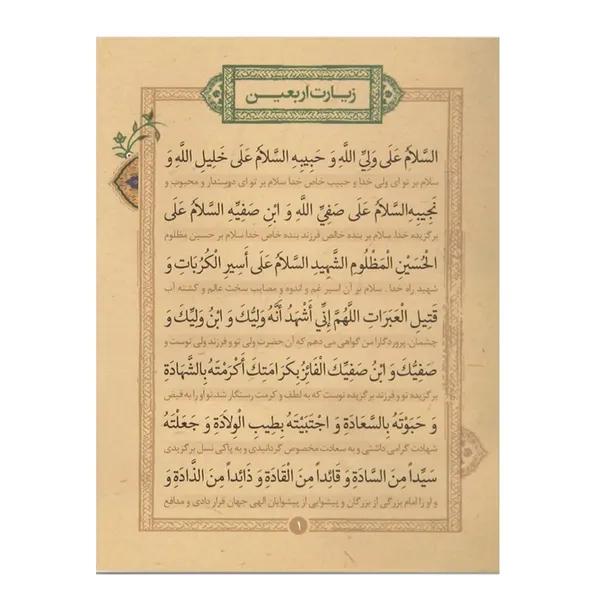 زیارت اربعین
السَّلامُ عَلَی وَلِیِّ اللَّهِ وَ حَبِیبِهِ السَّلامُ عَلَی خَلِیلِ اللَّهِ وَ
سلام بر تو ای ولی خدا و حبیب خاص خدا سلام بر تو ای دوستدار و محبوب و
نَجِیبِهِ السَّلامُ عَلَی صَفِیِّ اللَّهِ وَ ابْنِ صَفِیِّهِ السَّلامُ عَلَی
برگزیده خدا. سلام بر بنده خالص فرزند بنده خاص خدا سلام بر حسین مظلوم
الْحُسَیْنِ الْمَظْلُومِ الشَّهِیدِ السَّلامُ عَلَی أَسِیرِ الْکُرُبَاتِ وَ
شهید راه خدا. سلام بر آن اسیر غم و اندوه و مصایب سخت عالم و کشته آب
قَتِیلِ الْعَبَرَاتِ اللَّهُمَّ إِنِّی أَشْهَدُ أَنَّهُ وَلِیُّکَ وَ ابْنُ وَلِیِّکَ وَ
چشمان. پروردگارا من گواهی می دهم که آن حضرت ولی تو و فرزند ولی توست و
صَفِیُّکَ وَ ابْنُ صَفِیِّکَ الْفَائِزُ بِکَرَامَتِکَ أَکْرَمْتَهُ بِالشَّهَادَةِ
برگزیده تو و فرزند برگزیده توست که به لطف و کرمت رستگار شد. تو او را به فیض
وَ حَبَوْتَهُ بِالسَّعَادَةِ وَ اجْتَبَیْتَهُ بِطِیبِ الْوِلادَةِ وَ جَعَلْتَهُ
شهادت گرامی داشتی و به سعادت مخصوص گردانیدی و به پاکی نسل برگزیدی
سَیِّداً مِنَ السَّادَةِ وَ قَائِداً مِنَ الْقَادَةِ وَ ذَائِداً مِنَ الذَّادَةِ وَ
و او را امام بزرگی از بزرگان و پیشوایی از پیشوایان الهی جهان قرار دادی و مدافع
۱